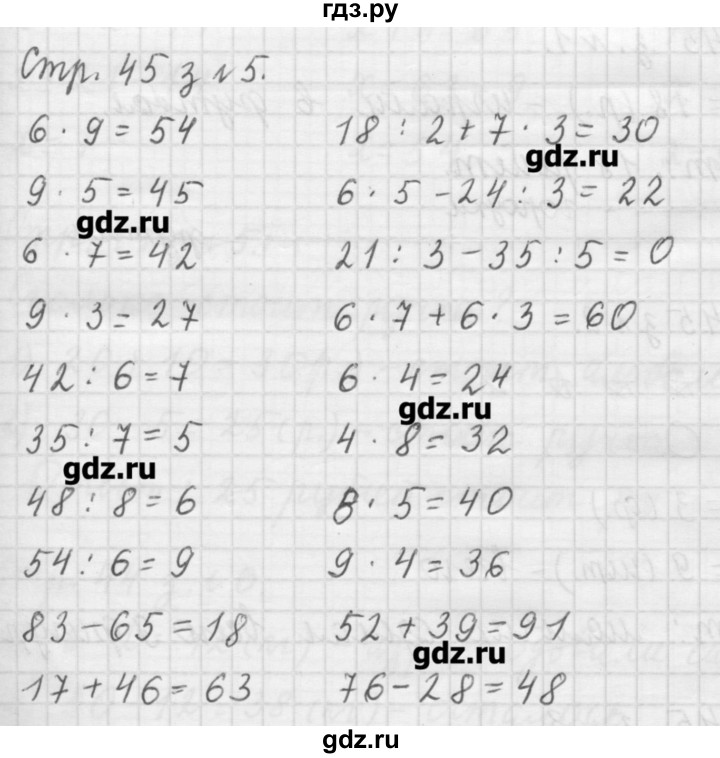 гдз.ру
Стр. 45 з №5.
6 · 9 = 54
9 · 5 = 45
gdz.ru
6 · 7 = 42
9 · 3 = 27
42 : 6 = 7
35 : 7 = 5
gdz.ru
48 : 8 = 6
54 : 6 = 9
83 - 65 = 18
17 + 46 = 63
18 : 2 + 7 · 3 = 30
gdz.ru
6 · 5 - 24 : 3 = 22
21 : 3 - 35 : 5 = 0
6 · 7 + 6 · 3 = 60
6 · 4 = 24
gdz.ru
4 · 8 = 32
8 · 5 = 40
9 · 4 = 36
52 + 39 = 91
gdz.ru
76 - 28 = 48
gdz.ru